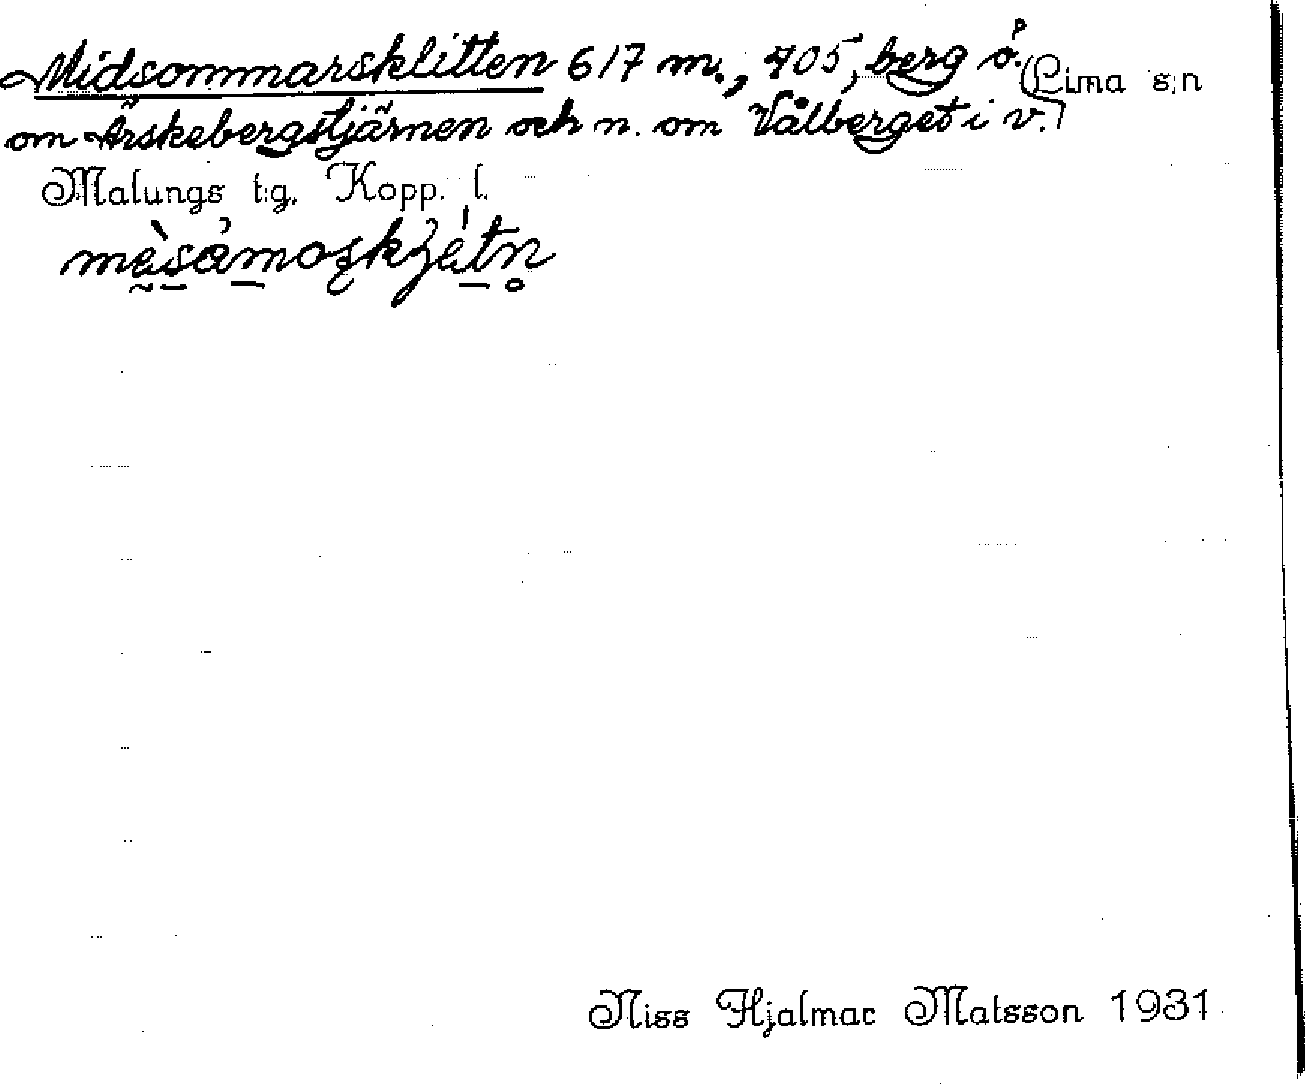 Midsommarsklitten 617 m., 705, berg ö. Lima s:n
om Ärskebergstjärnen och n. om Vålberget i v.
Malungs t:g. Kopp. l.
Niss Hjalmar Matsson 1931